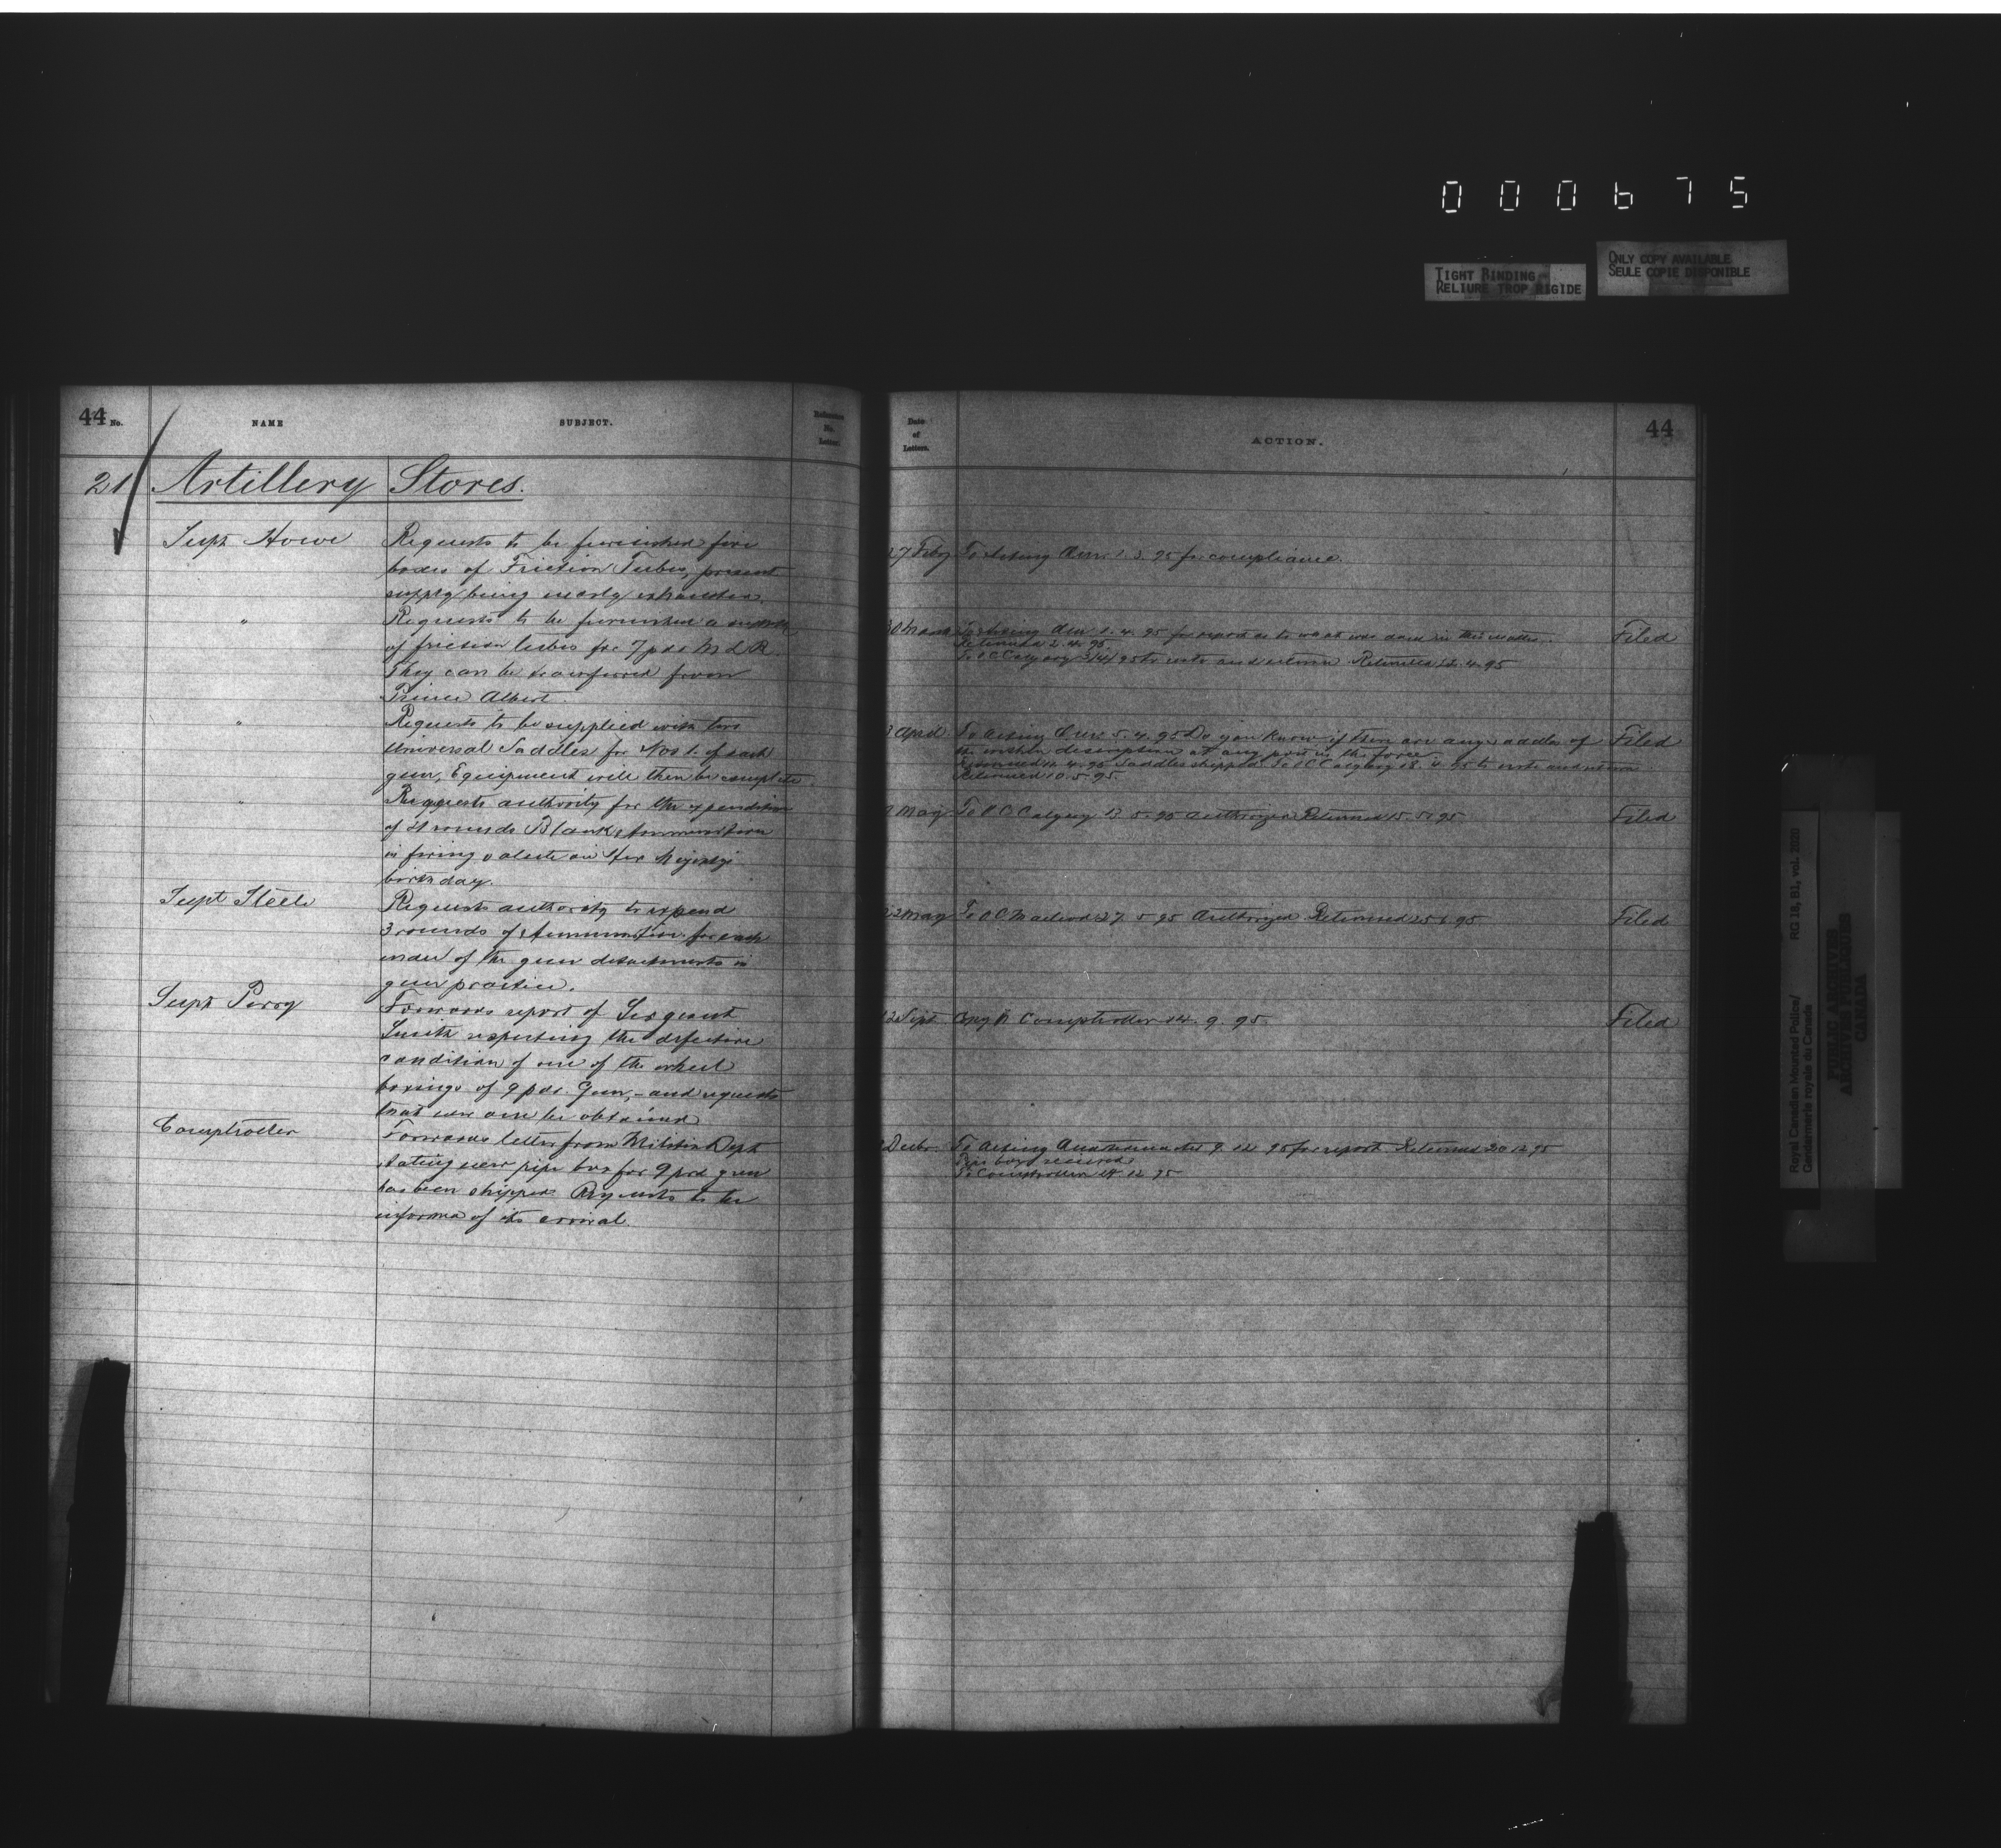 000675
TIGHT BINDING
RELIURE TROP RIGIDE
ONLY COPY AVAILABLE
SEULE COPIE DISPONIBLE
44 No.
NAME
SUBJECT.
Reference
No.
Letter.
21
Artillery Stores.
Supt Howe
Requests to be furnished five
boxes of Friction Tubes, present
supply being nearly exhausted.
"
Requests to be furnished a
of friction tubes for 7 pdr M L R.
They can be transferred from
Prince Albert.
"
Requests to be supplied with two
Universal Saddles for Nos 1. of each
gun, Equipment will then be complete.
"
Requests authority for the expenditure
of 21 rounds Blank Ammunition
in firing salute on Her Majesty's
birthday.
Supt Steele
Requests authority to expend
3 rounds of Ammunition for each
of the gun detachments in
gun practice.
Supt Perry
Forwards report of Sergeant
Smith respecting the defective
condition of one of the wheel
boxings of 9 pdr. Gun, - and requests
that new one be obtained
Comptroller
Forwards letter from Militia Dept
stating new pipe box for 9 prd gun
has been shipped Requests to be
informed of its arrival.
Date
of
Letters.
ACTION.
44
27 Feby To Acting 1. 3. 95 for compliance.
30 March To Acting 1. 4. 95 for report as to what was done in this matter. Filed
Returned 2. 4. 95.
To O C Calgary 3/4/95 to note and return Returned 12. 4. 95
April To Acting 5. 4. 95 Do you know if there are any saddles of Filed
the within description at any post in the force
Returned 4. 95 Saddles shipped. To O C Calgary 18. 4. 95 to note and return
Returned 10. 5. 95.
May To O C Calgary 13. 5. 95 Authorized Returned 15. 5. 95 Filed
22 May To O C Macleod 27. 5. 95 Authorized. Returned 95 Filed
12 Sept Copy to Comptroller 14. 9. 95 Filed
Decbr. To Acting Quartermaster 9. 12. 95 for report Returned 20 12 95
Pipe box received
To Comptroller 12 95
Royal Canadian Mounted Police/
Gendarmerie royale du Canada
RG 18, B1, vol. 2020
PUBLIC ARCHIVES
ARCHIVES PUBLIQUES
CANADA